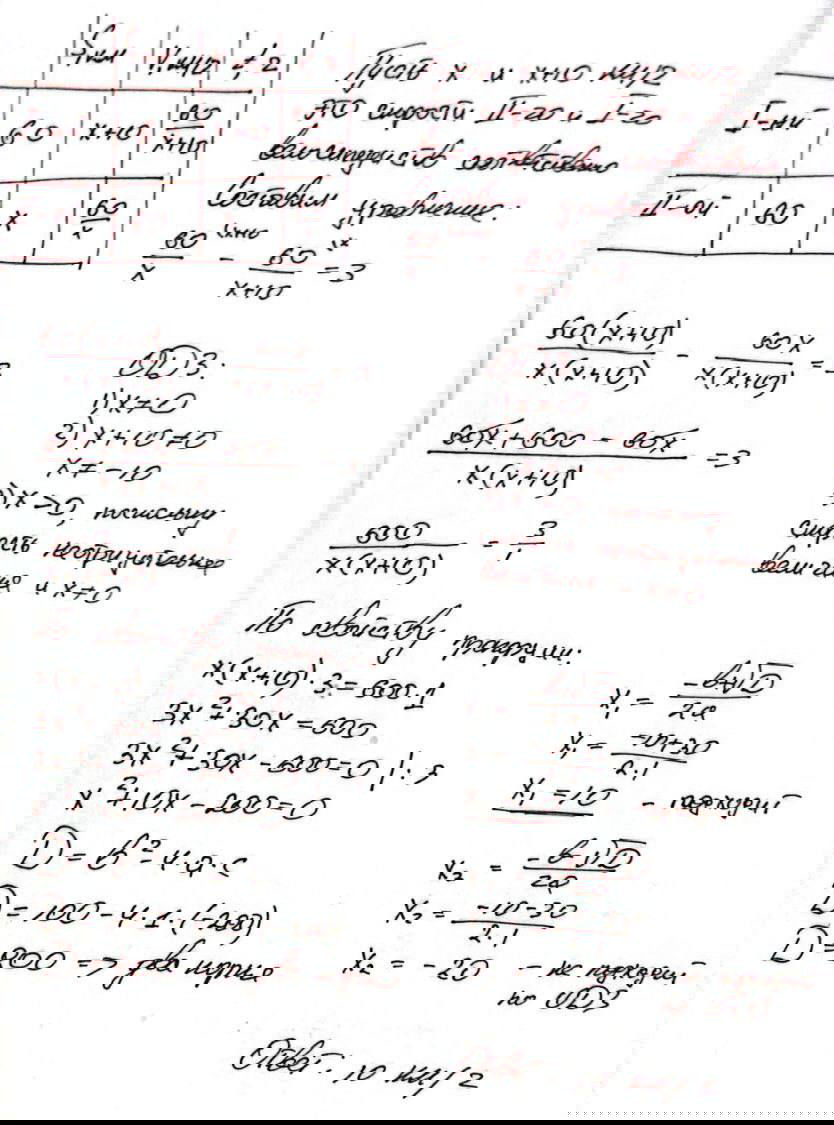 S км V км/ч t, ч
60 x+10 60/(x+10)
x 60/x
Пусть x и x+10 км/ч
это скорости II-го и I-го
велосипедистов соответственно
Составим уравнение:
60/x - 60/(x+10) = 3
I-ый
II-ой 60
60(x+10)/(x(x+10)) - 60x/(x(x+10)) =
ОДЗ:
1) x≠0
2) x+10≠0
x≠-10
) x>0, поскольку
неотрицательная
и x≠0
(60x+600-60x)/(x(x+10)) = 3
600/(x(x+10)) = 3/1
По свойству пропорции:
x(x+10)·3=600·1
3x²+30x=600
3x²+30x-600=0 |:3
x²+10x-200=0
D=b²-4·a·c
D=100-4·1·(-200)
900 => два корня
x₁ = (-b+√D)/2a
x₁ = (-10+30)/(2·1)
x₁=10 - подходит
x₂ = (-b-√D)/2a
x₂ = (-10-30)/(2·1)
x₂ = -20 - не подходит
по ОДЗ
D=
Ответ: 10 км/ч